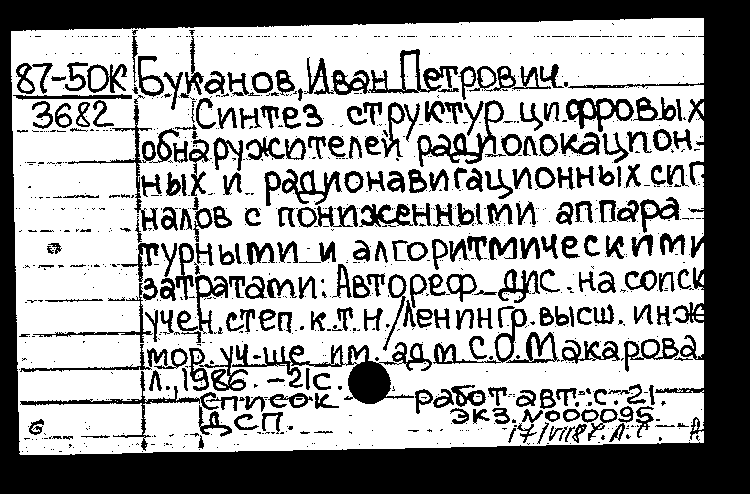 87-50К Буканов, Иван Петрович.
3682 Синтез структур цифровых
обнаружителей радиолокацион-
ных и радионавигационных сиг-
налов с пониженными аппара-
турными и алгоритмическими
затратами: Автореф. дис. на соиск
учен. степ. к.т.н. / Ленингр. высш. инж
мор. уч-ще им. адм. С.О. Макарова.
Л., 1986. - 21с.
Список работ авт.: с. 21.
ДСП. Экз. №000095.